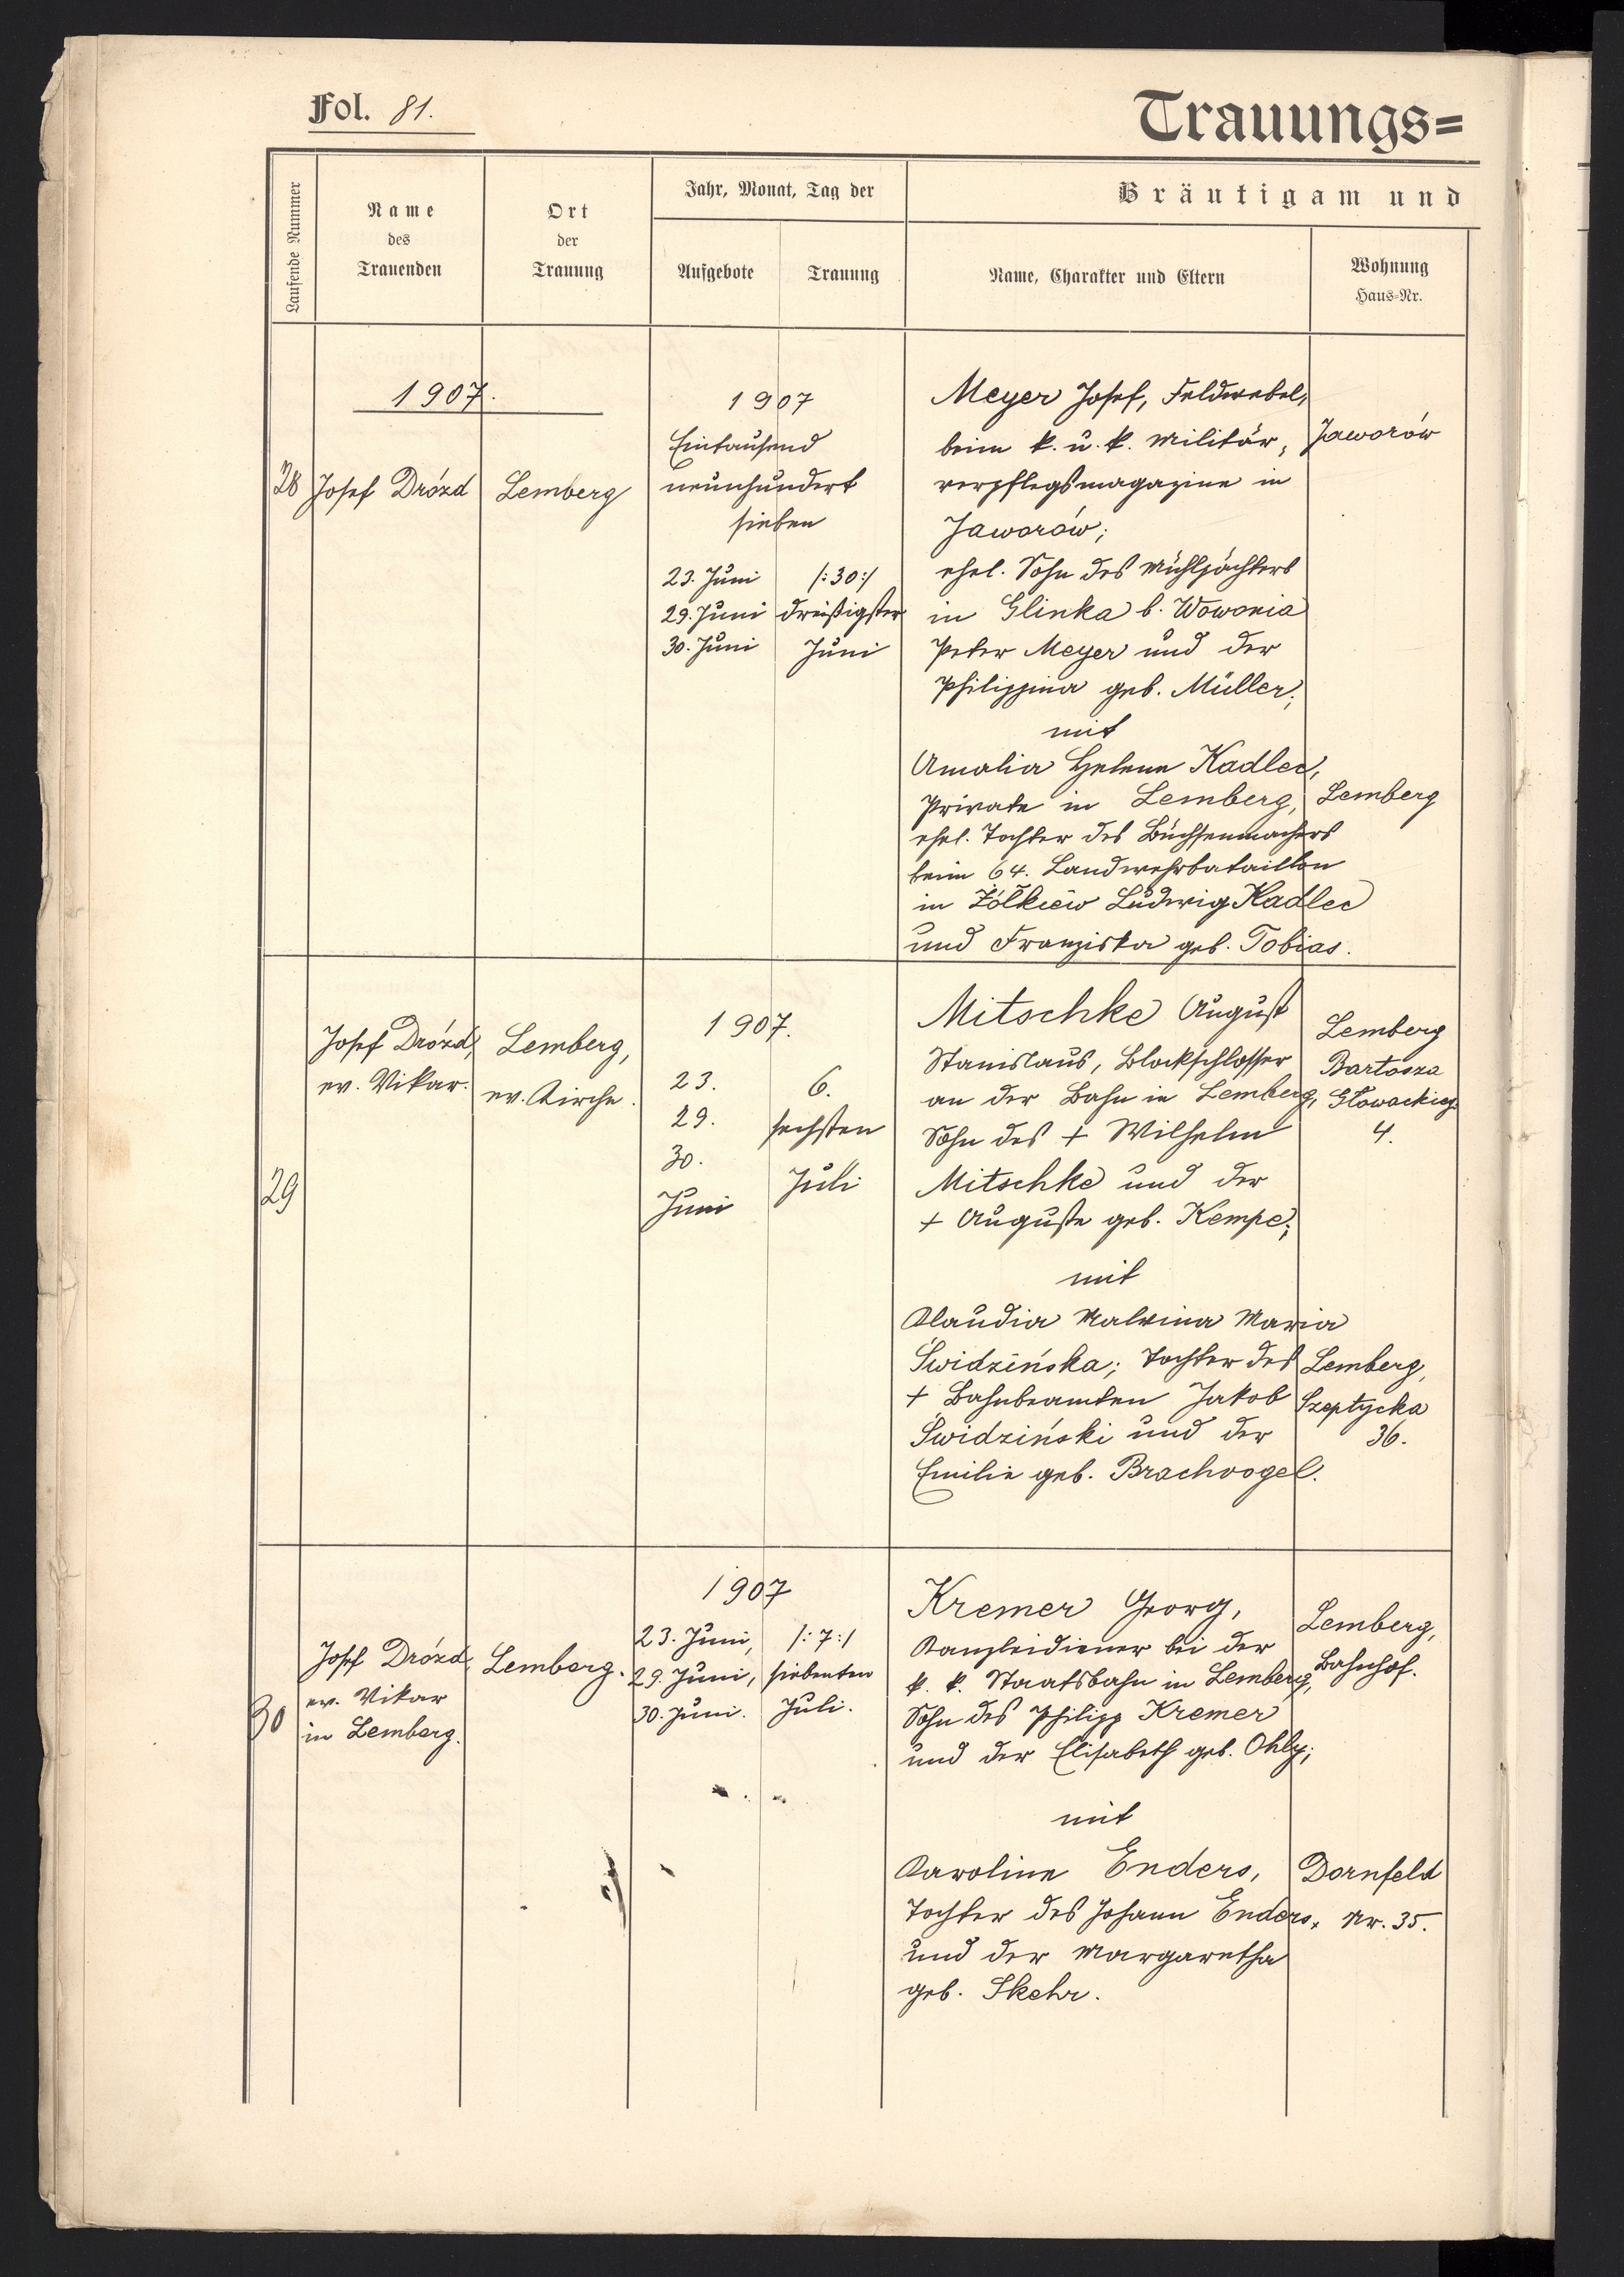 Fol. 81.
Trauungs=
Laufende Nummer
Name
des
Trauenden
Ort
der
Trauung
Jahr, Monat, Tag der
Aufgebote
Trauung
Bräutigam und
Name, Charakter und Eltern
Wohnung
Haus-Nr.
1907.
28
Josef Drózd
Lemberg
1907
Eintausend
neunhundert
sieben
23. Juni
29. Juni
30. Juni
/:30:/
dreißigster
Juni
Meyer Josef, Feldwebel,
beim k. u. k. Militär-
verpflegsmagazine in
Jaworów;
ehel. Sohn des Mühlpächters
in Glinka b. Wowonia
Peter Meyer und der
Philippina geb. Müller;
mit
Amalia Helene Kadlec,
Private in Lemberg,
ehel. Tochter des Büchsenmachers
beim 64. Landwehrbataillon
in Żółkiew Ludwig Kadlec
und Franziska geb. Tobias.
Jaworów
Lemberg
29
Josef Drózd,
ev. Vikar.
Lemberg,
ev. Kirche.
1907.
23.
29.
30.
Juni
6.
sechsten
Juli
Mitschke August
Stanislaus, Blockschlosser
an der Bahn in Lemberg,
Sohn des + Wilhelm
Mitschke und der
+ Auguste geb. Kempe;
mit
Klaudia Malvina Maria
Świdzińska; Tochter des
+ Bahnbeamten Jakob
Świdziński und der
Emilie geb. Brachvogel.
Lemberg
Bartosza
Głowackieg.
4.
Lemberg,
Szeptycka
36.
30
Josef Drózd,
ev. Vikar
in Lemberg.
Lemberg.
1907
23. Juni,
29. Juni,
30. Juni.
/:7:/
siebenten
Juli.
Kremer Georg,
Kanzleidiener bei der
k. k. Staatsbahn in Lemberg,
Sohn des Philipp Kremer
und der Elisabeth geb. Ohly;
mit
Karoline Enders,
Tochter des Johann Enders,
und der Margaretha
geb. Skehr.
Lemberg,
Bahnhof.
Dornfeld
Nr. 35.